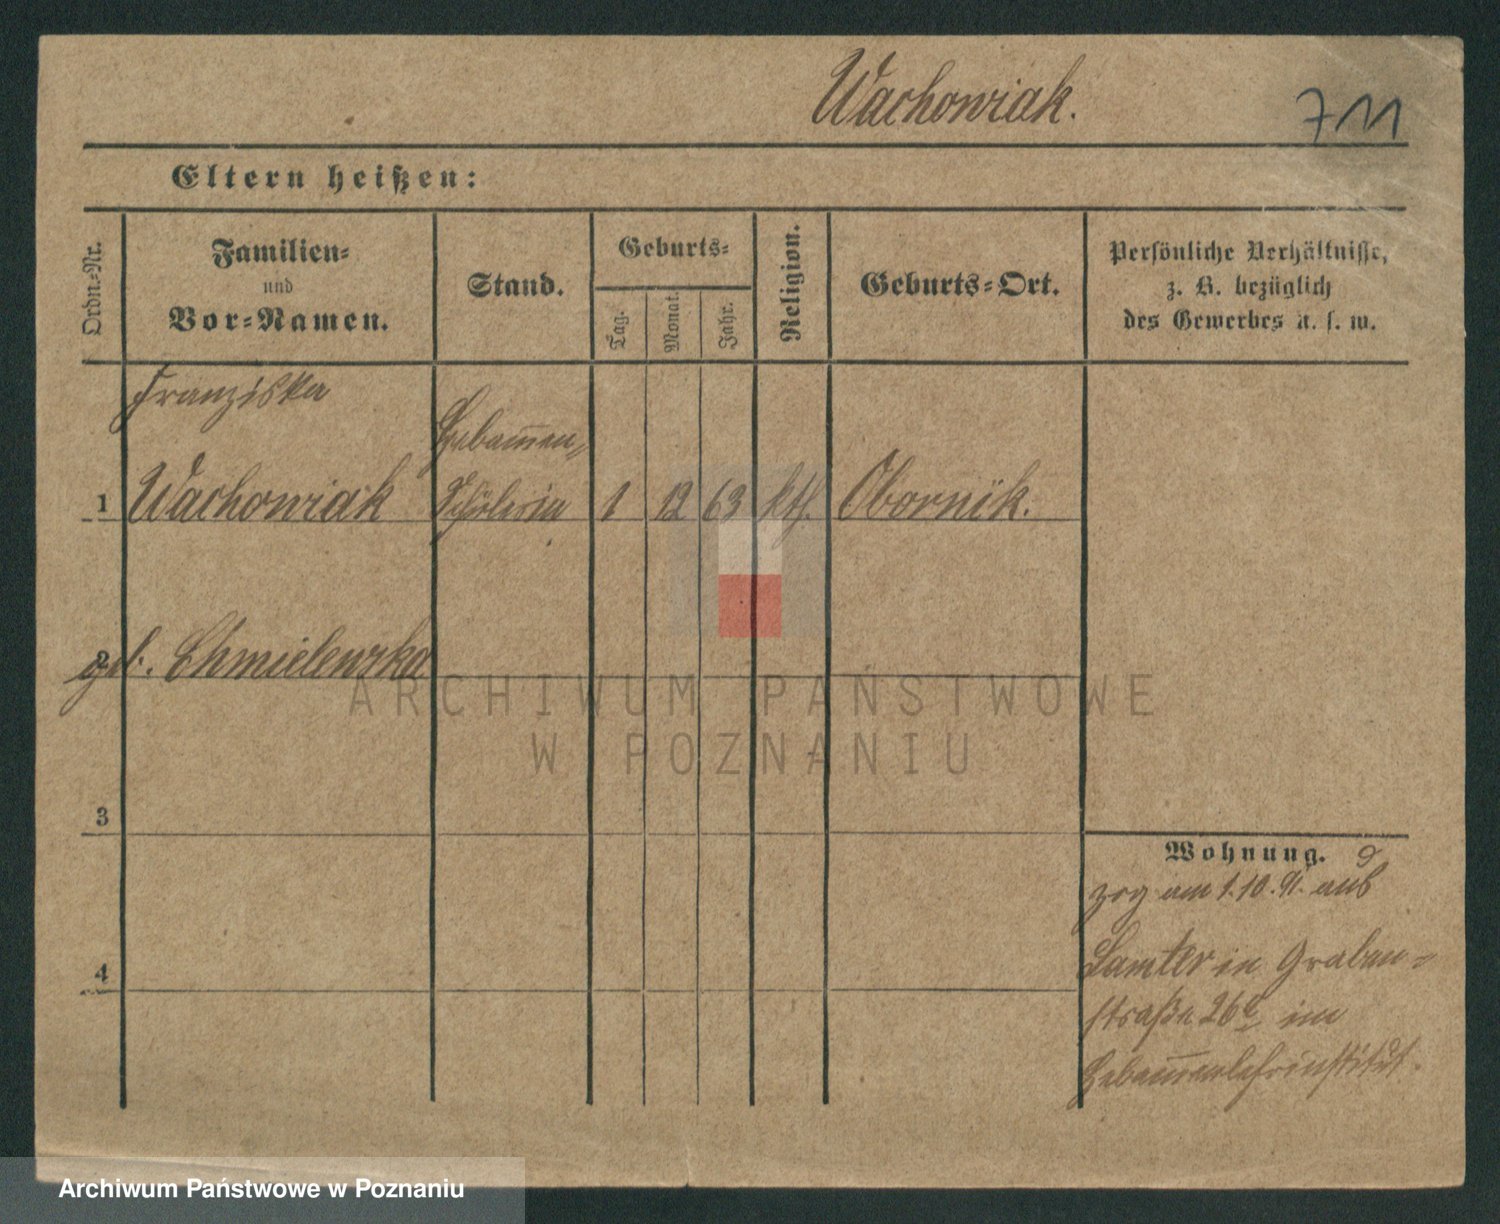 Wachowiak.
711
Eltern heißen:
Ordn.-Nr.
Familien-
und
Vor-Namen.
Stand.
Geburts-
Tag.
Monat.
Jahr.
Religion.
Geburts-Ort.
Persönliche Verhältnisse,
z. B. bezüglich
des Gewerbes u. s. w.
Franziska
Hebam̅en-
1 Wachowiak Schülerin 1 12 63 kth. Obornik.
2
geb. Chmielewska
ARCHIWUM PAŃSTWOWE
W POZNANIU
3
Wohnung.
zog am 1.10.91. aus
4
Samter in Graben-
straße 26 im
Hebam̅enlehrinstitut.
Archiwum Państwowe w Poznaniu